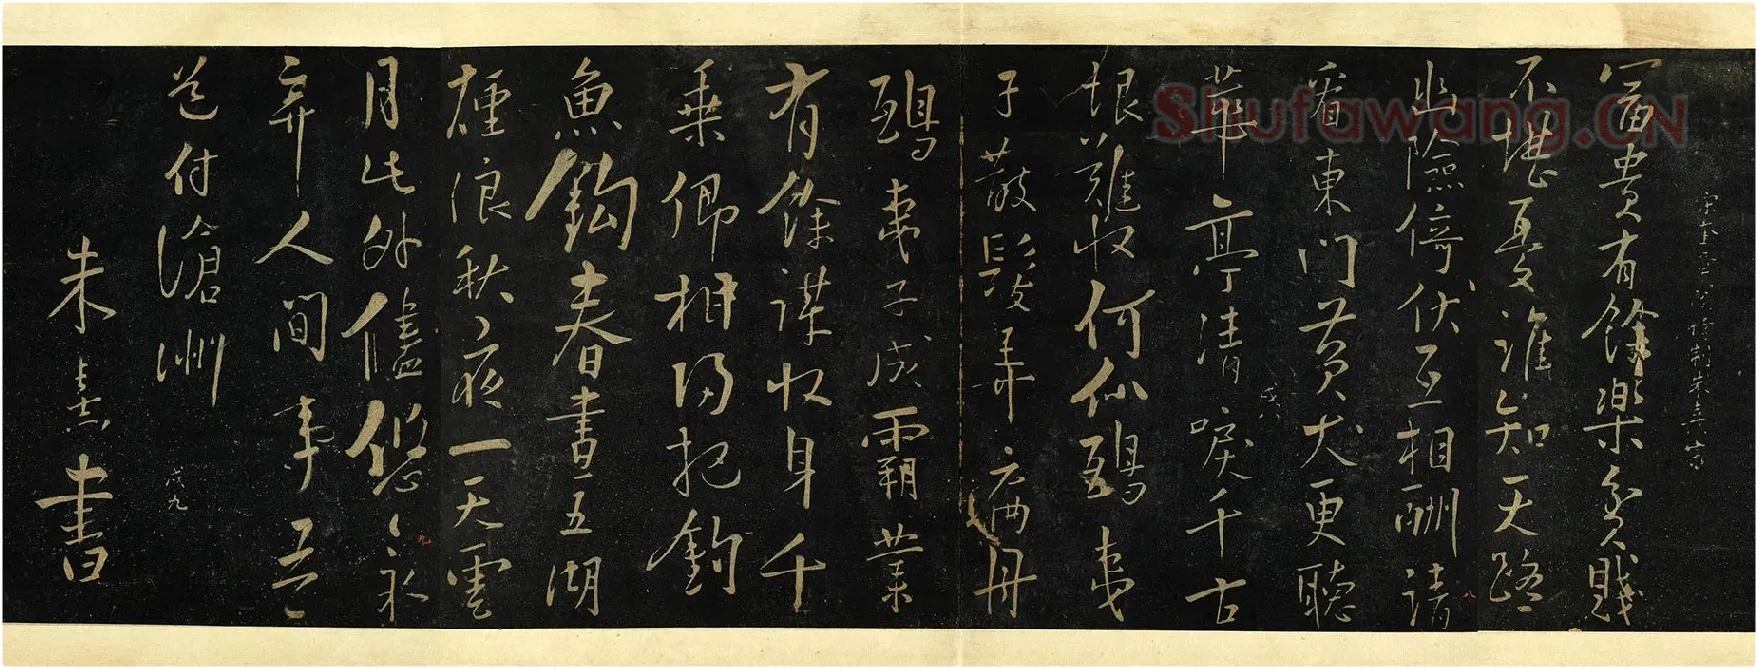 富貴有餘樂貧賤
不堪憂誰知天路
幽險倚伏互相酬請
看東門黃犬更聽
華亭清唳千古
戊八
恨難收何似鴟夷
子散髮弄扁舟
鴟夷子成霸業
有餘謀收身千
乘卿相歸把釣
魚鈎春晝五湖
煙浪秋夜一天雲
月此外儘悠悠永
棄人間事吾
道付滄洲
戊九
朱熹書
Shufawang.CN